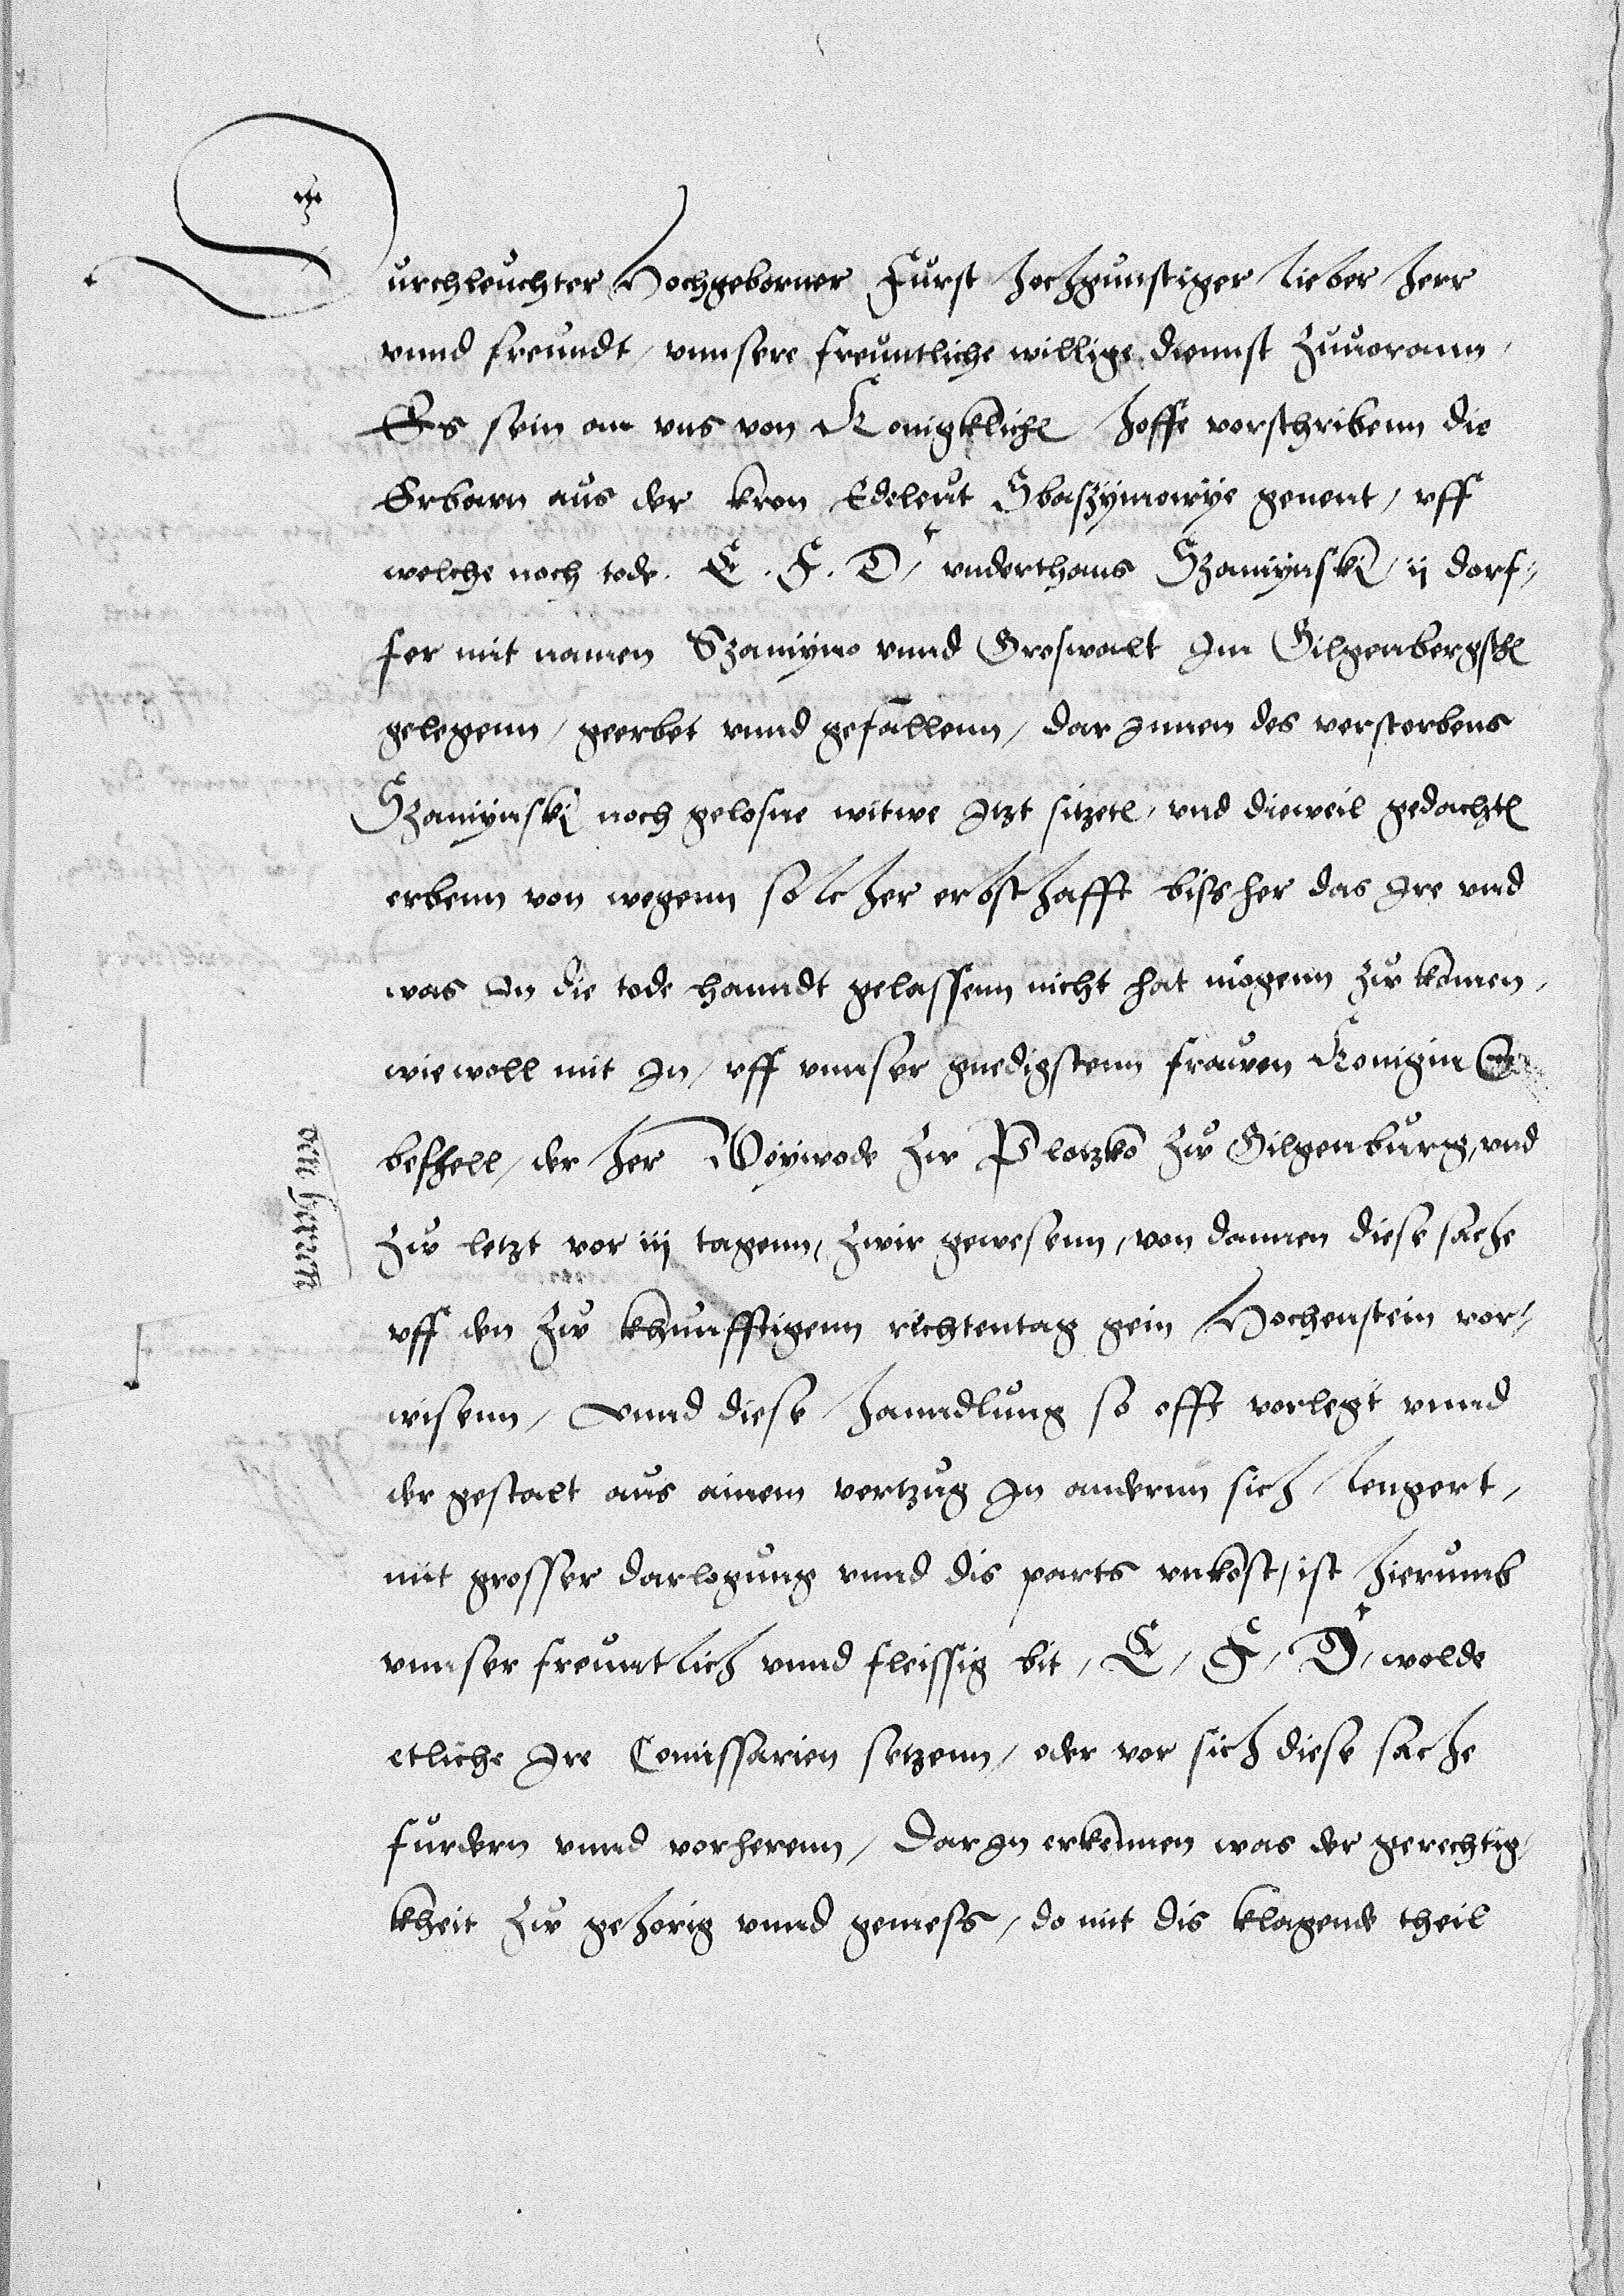 Durchleuchter Hochgeborner Furst hochgunstiger lieber herr
vnnd freundt / vnnsere freuntliche willige diennst zuuorann /
Es sein an vns von Konigklichem hoffe vorschribenn die
Erbarn aus der kron Edeleut Sbaszymowye genent / vff
welche noch tode. E. F. D / vnderthans Szamynsky / ij dorf=
fer mit namen Szamyno vnnd Groswalt Im Gilgenbergschen
gelegenn / geerbet vnnd gefallenn / dar Innen des verstorbens
Szamynsky noch gelosne witwe Itzt sitzett / vnd dieweil gedachten
erbenn von wegenn solcher erbschafft bissher das Ire vnd
was In die tode hanndt gelassenn nicht hat mogenn zw komen /
wiewoll mit In / vff vnnser gnedigstenn frawen Konigin
befhell / der her Woywode zw Plotzko zw Gilgenburg, vnd
zw letzt vor iij tagenn, zwir gewesenn, von dannen diese sache
vff den zw khunfftigenn richtentag gein Hochenstein vor=
wisenn / Vnnd diese hanndlung so offt vorlegt vnnd
der gestalt aus ainem vertzug In anderun sich lengert /
mit grosser darlegung vnnd dis parts vnkost / ist hierumb
vnnser freuntlich vnnd fleissig bit / E / F / D / wolde
etliche Ire Comissarien setzenn / oder vor sich diese sache
furdern vnnd vorherenn / dar In erkennen was der gerechtig=
kheit zw gehorig vnnd gemess / do mit dis klagende theil